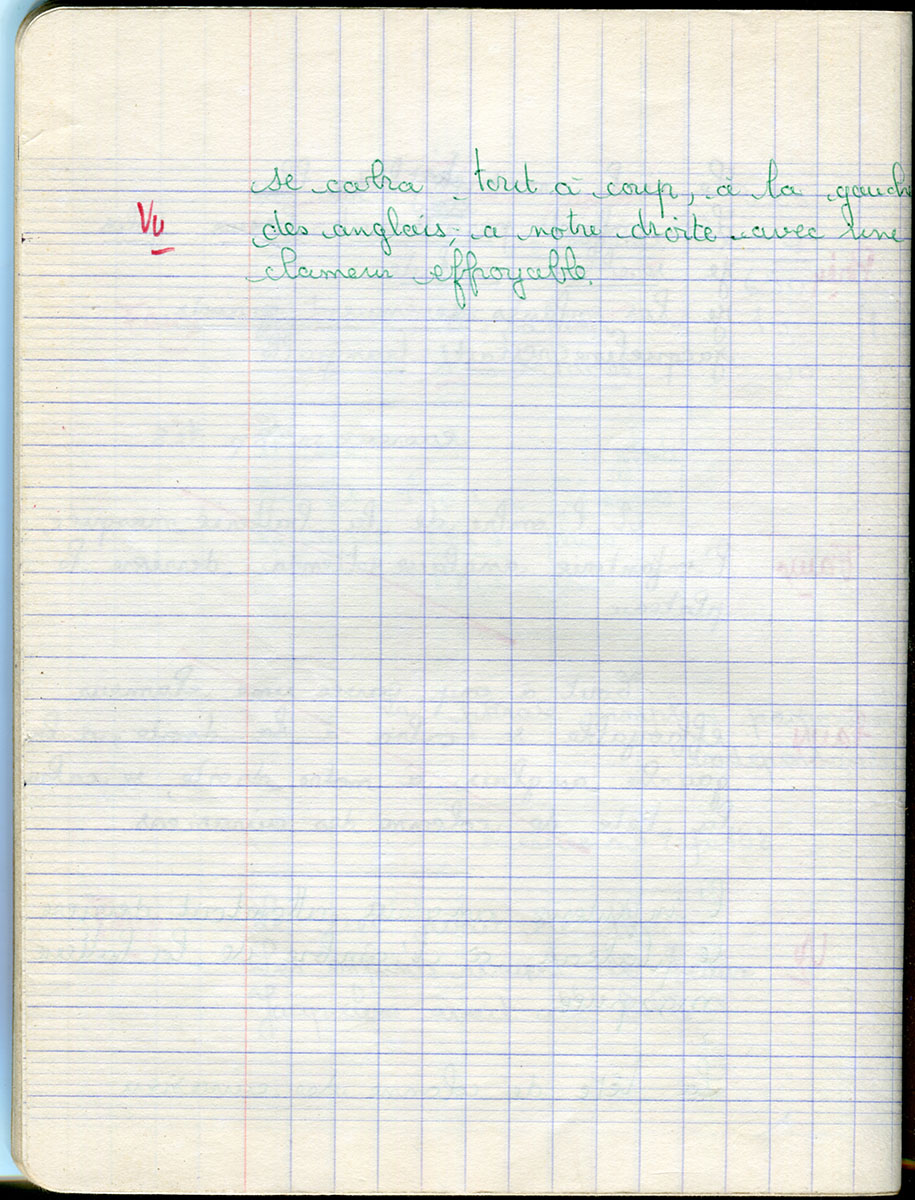 se cabra tout à coup, à la gauch
Vu
des anglais, a notre droite avec une
clameur effroyable.